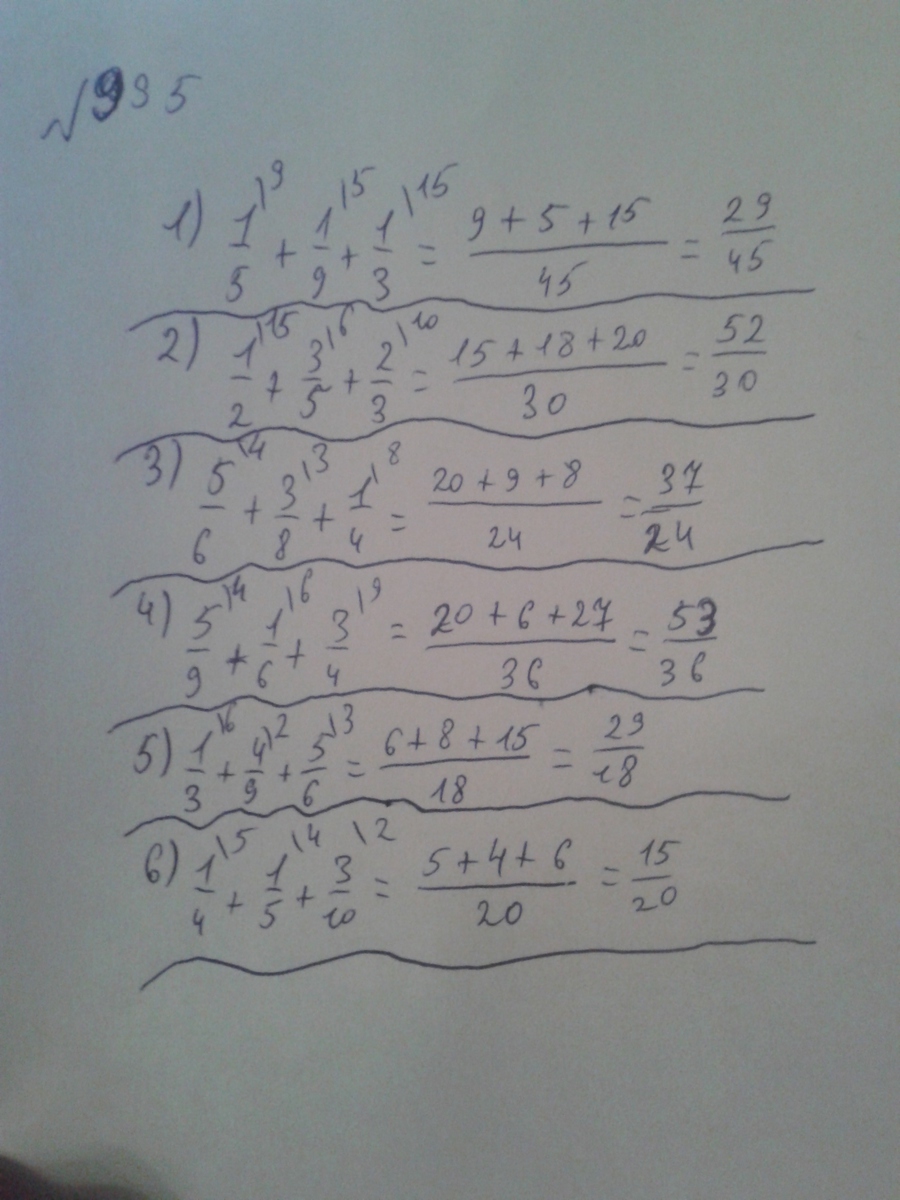 √995
1) 1/5 \9 + 1/9 \5 + 1/3 \15 = (9 + 5 + 15)/45 = 29/45
2) 1/2 \15 + 3/5 \6 + 2/3 \10 = (15 + 18 + 20)/30 = 52/30
3) 5/6 \4 + 3/8 \3 + 1/4 \8 = (20 + 9 + 8)/24 = 37/24
4) 5/9 \4 + 1/6 \6 + 3/4 \9 = (20 + 6 + 27)/36 = 53/36
5) 1/3 \6 + 4/9 \2 + 5/6 \3 = (6 + 8 + 15)/18 = 29/18
6) 1/4 \5 + 1/5 \4 + 3/10 \2 = (5 + 4 + 6)/20 = 15/20